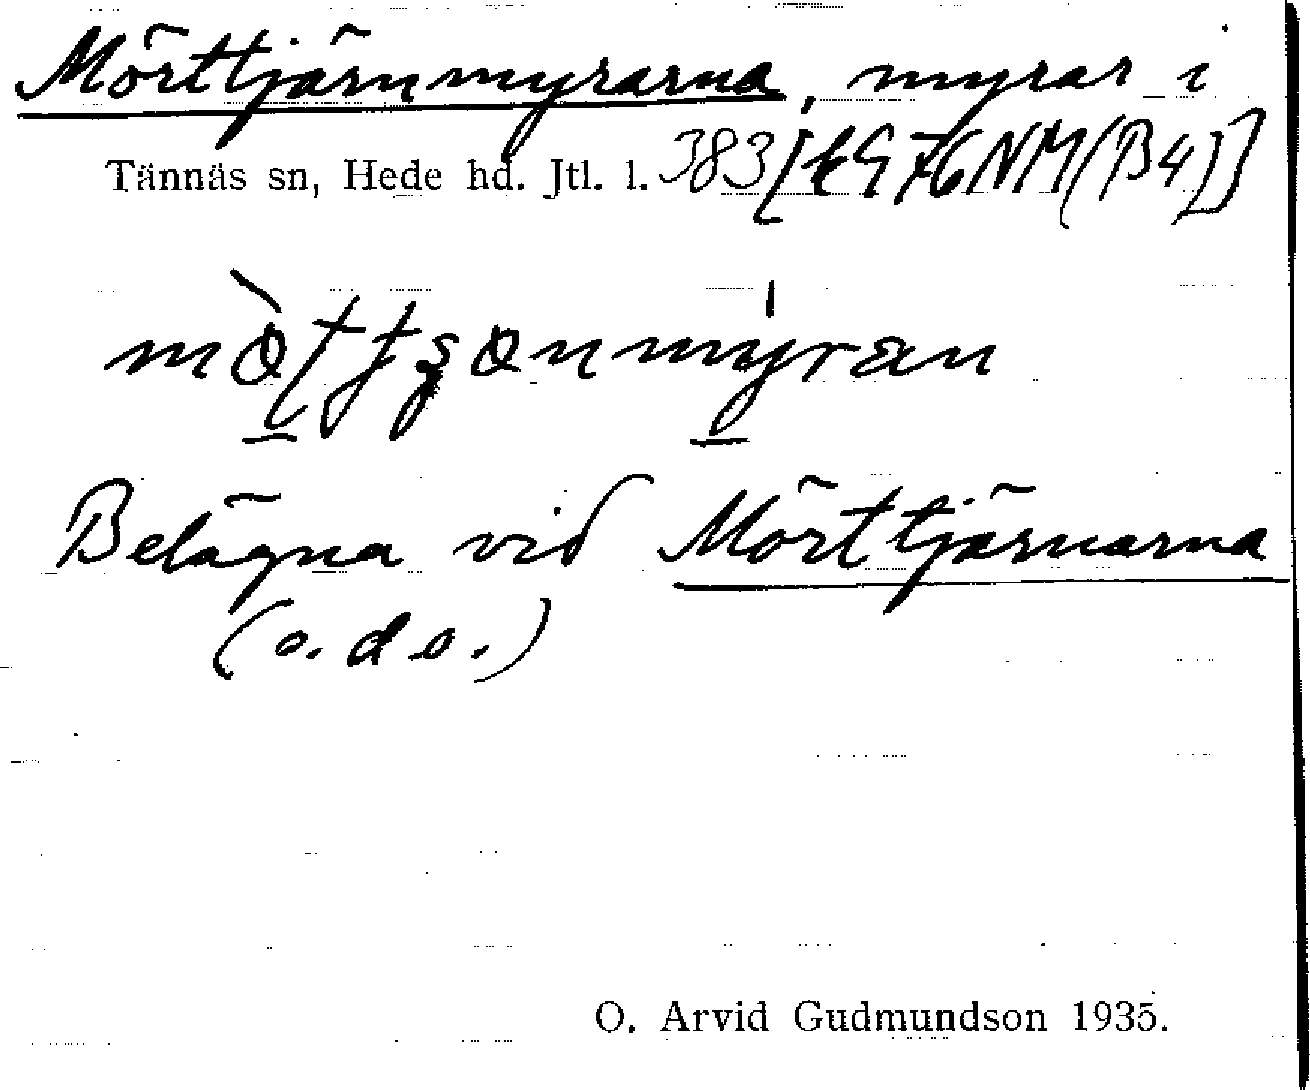 Mörttjärnmyrarna, myrar i
Tännäs sn, Hede hd. Jtl. l. 383
Belägna vid Mörttjärnarna
(o.d.o.)
O. Arvid Gudmundson 1935.